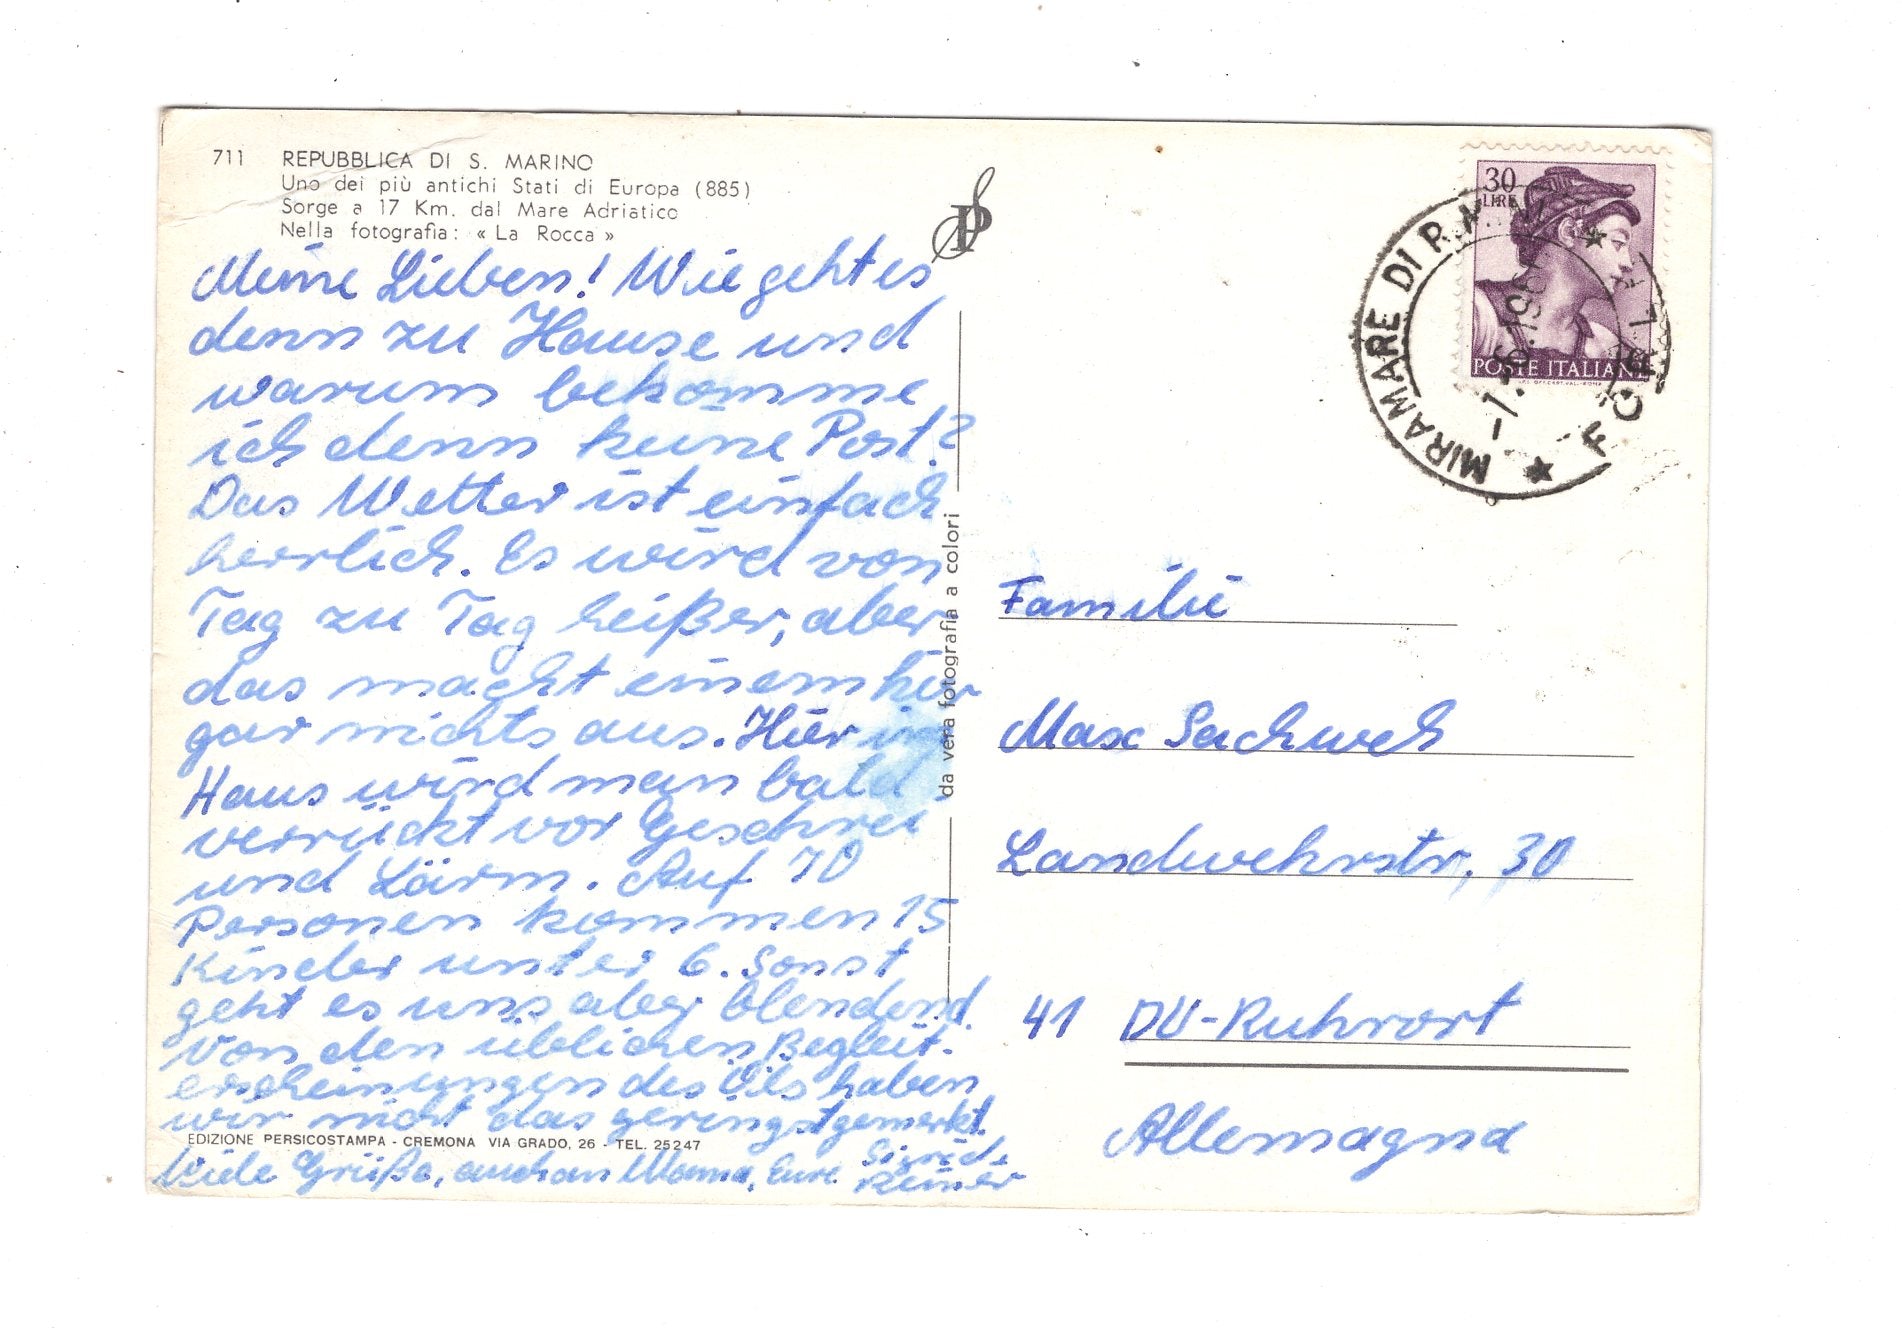 711 REPUBBLICA DI S. MARINO
Uno dei più antichi Stati di Europa (885)
Sorge a 17 Km. dal Mare Adriatico
Nella fotografia: « La Rocca »
Meine Lieben! Wie geht es
denn zu Hause und
warum bekomme
ich denn keine Post?
Das Wetter ist einfach
herrlich. Es wird von
Tag zu Tag heißer, aber
das macht einem hier
gar nichts aus. Hier im
Haus wird man bald
verrückt vor Geschrei
und Lärm. Auf 70
Personen kommen 15
Kinder unter 6. Sonst
geht es uns aber blendend.
Von den üblichen Begleit-
erscheinungen des Öls haben
wir nicht das geringst gemerkt.
EDIZIONE PERSICOSTAMPA - CREMONA VIA GRADO, 26 - TEL. 25247
Viele Grüße, auch an Mama, Eure Sigrid
Reiner
da vera fotografia a colori
SP
30
LIRE
POSTE ITALIANE
MIRAMARE DI RIMINI
FORLI
Familie
Max Sachweh
Landwehrstr. 30
41 DU-Ruhrort
Allemagna